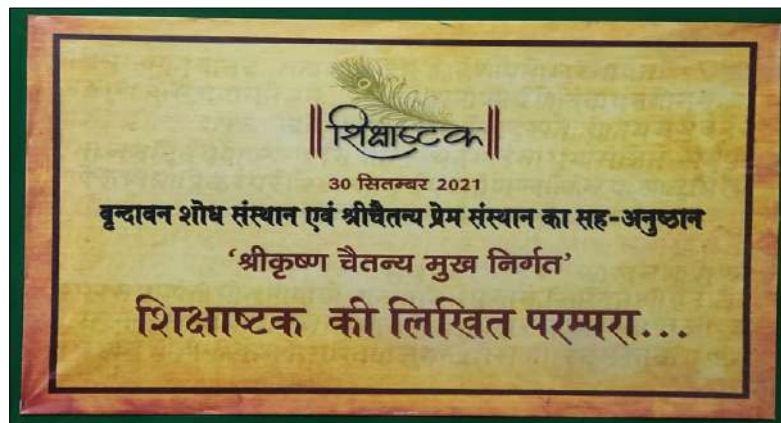 ॥शिक्षाष्टक॥
30 सितम्बर 2021
वृन्दावन शोध संस्थान एवं श्रीचैतन्य प्रेम संस्थान का सह-अनुष्ठान
‘श्रीकृष्ण चैतन्य मुख निर्गत’
शिक्षाष्टक की लिखित परम्परा...